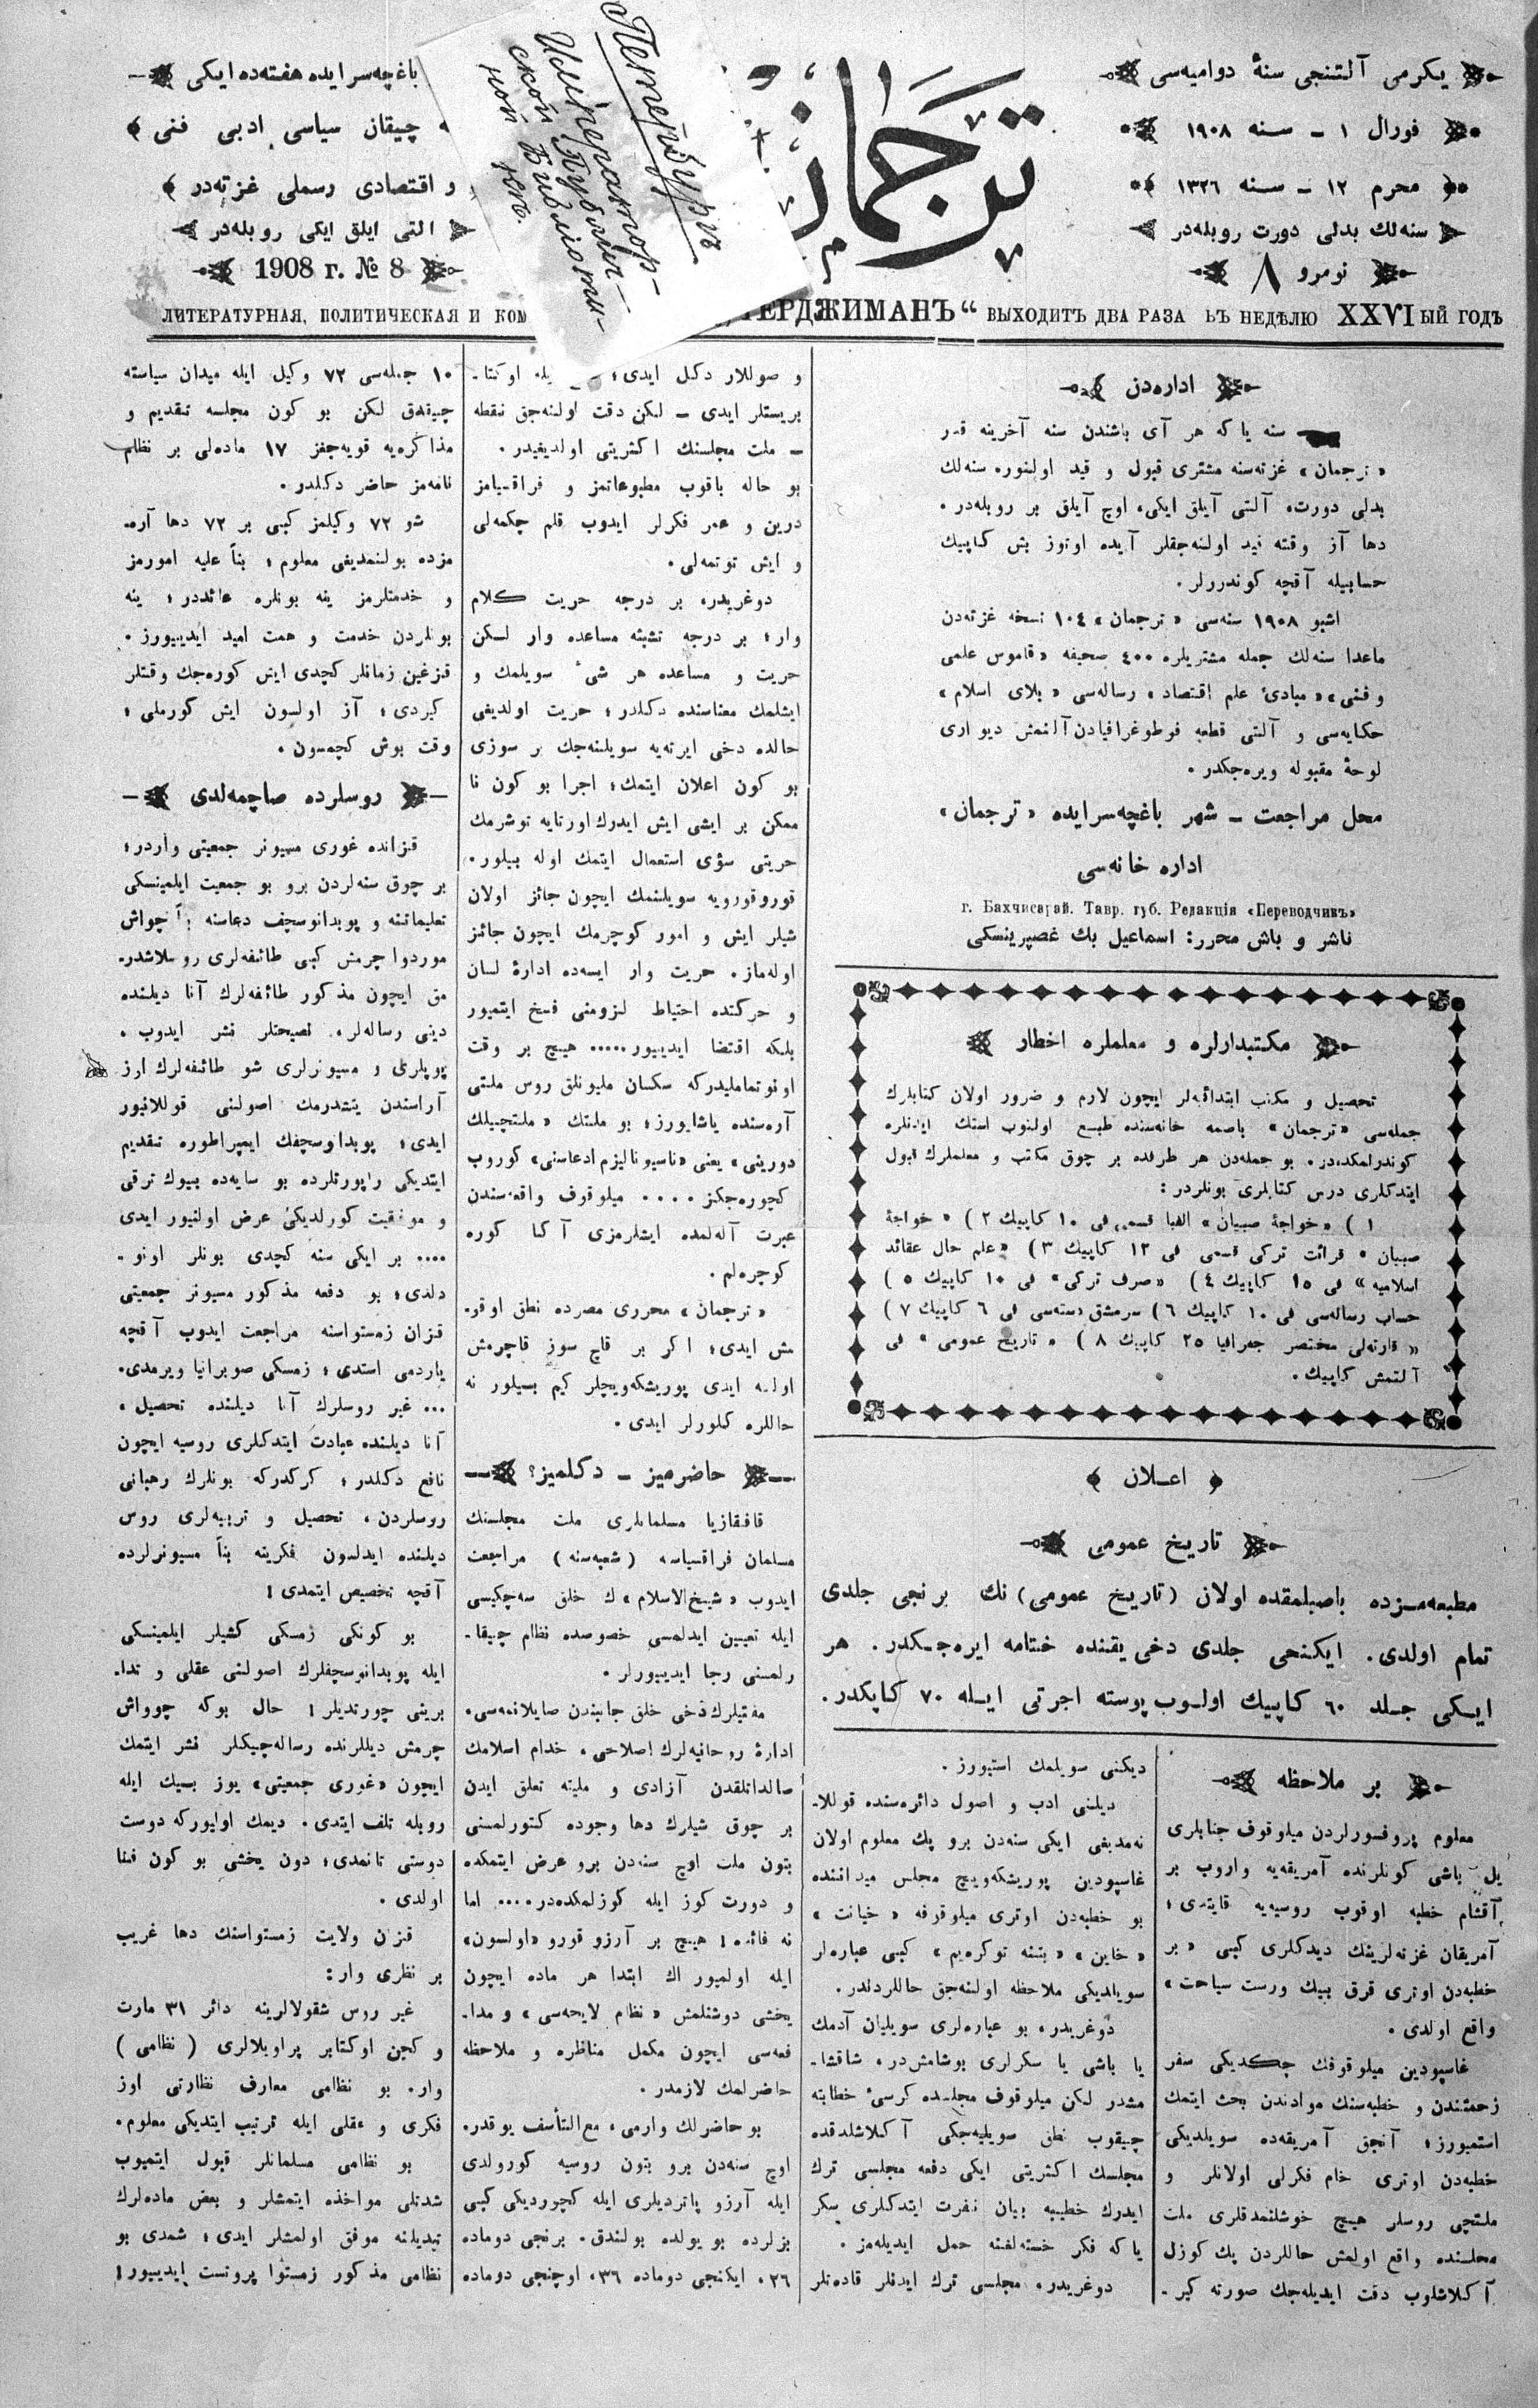 يكرمى آلتنجى سنهٔ دواميه‌سى
فورال ١ ــ سنه ١٩٠٨
محرم ١٢ ــ سنه ١٣٢٦
سنه‌لك بدلى دورت روبله‌در
نومرو ٨
ترجمان
Петербургъ
Император-
ской Публич-
ной Библioте-
باغچه‌سرايده هفته‌ده ايكى
چيقان سياسى ادبى فنى
و اقتصادى رسملى غزته‌در
التى ايلق ايكى روبله‌در
1908 г. № 8
ЛИТЕРАТУРНАЯ, ПОЛИТИЧЕСКАЯ И КОМ
ТЕРДЖИМАНЪ“ ВЫХОДИТЪ ДВА РАЗА ВЪ НЕДѢЛЮ XXVIЫЙ ГОДЪ
اداره‌دن
سنه يا كه هر آى باشندن سنه آخرينه قدر
« ترجمان » غزته‌سنه مشترى قبول و قيد اولنور، سنه‌لك
بدلى دورت، آلتى آيلق ايكى، اوچ آيلق بر روبله‌در.
دها آز وقته قيد اولنه‌جقلر آيده اوتوز بش كاپيك
حسابيله آقچه كوندررلر.
اشبو ١٩٠٨ سنه‌سى « ترجمان » ١٠٤ نسخه غزته‌دن
ماعدا سنه‌لك جمله مشتريلره ٤٠٠ صحيفه « قاموس علمى
و فنى » « مبادئ علم اقتصاد » رساله‌سى « بلاى اسلام »
حكايه‌سى و آلتى قطعه فوطوغرافيادن آلنمش ديوارى
لوحهٔ مقبوله ويره‌جكدر.
محل مراجعت ــ شهر باغچه‌سرايده « ترجمان »
اداره خانه‌سى
г. Бахчисарай. Тавр. губ. Редакція «Переводчикъ»
ناشر و باش محرر: اسماعيل بك غصپرينسكى
مكتبدارلره و معلملره اخطار
تحصيل و مكتب ابتدائيه‌لر ايچون لازم و ضرور اولان كتابلرك
جمله‌سى « ترجمان » باصمه خانه‌سنده طبع اولنوب استك ايدنلره
كوندرلمكده‌در. بو جمله‌دن هر طرفده بر چوق مكتب و معلملرك قبول
ايتدكلرى درس كتابلرى بونلردر:
١ ) « خواجهٔ صبيان » الفبا قسمى فى ١٠ كاپيك ٢ ) « خواجهٔ
صبيان » قرائت تركى قسمى فى ١٢ كاپيك ٣ ) « علم حال عقائد
اسلاميه » فى ١٥ كاپيك ٤ ) « صرف تركى » فى ١٠ كاپيك ٥ )
حساب رساله‌سى فى ١٠ كاپيك ٦ ) سرمشق دسته‌سى فى ٦ كاپيك ٧ )
« قارته‌لى مختصر جغرافيا ٢٥ كاپيك ٨ ) « تاريخ عمومى » فى
آلتمش كاپيك.
اعلان
تاريخ عمومى
مطبعه‌مزده باصيلمقده اولان (تاريخ عمومى) نك برنجى جلدى
تمام اولدى. ايكنجى جلدى دخى يقنده ختامه ايره‌جكدر. هر
ايكى جلد ٦٠ كاپيك اولوب پوسته اجرتى ايله ٧٠ كاپكدر.
بر ملاحظه
معلوم پروفسورلردن ميلوقوف جنابلرى
يل باشى كونلرنده آمريقه‌يه واروب بر
آقشام خطبه اوقوب روسيه‌يه قايتدى؛
آمريقان غزته‌لرينك ديدكلرى كبى « بر
خطبه‌دن اوترى قرق بيك ورست سياحت »
واقع اولدى.
غاسپودين ميلوقوفك چكديكى سفر
زحمتندن و خطبه‌سنك موادندن بحث ايتمك
استميورز؛ آنجق آمريقه‌ده سويلديكى
خطبه‌دن اوترى خام فكرلى اولانلر و
ملتچى روسلر هيچ خوشلنمدقلرى ملت
مجلسنده واقع اولمش حاللردن پك كوزل
آكلاشلوب دقت ايديله‌جك صورته كير-
ديكنى سويلمك استيورز.
ديلنى ادب و اصول دائره‌سنده قوللا-
نه‌مديغى ايكى سنه‌دن برو پك معلوم اولان
غاسپودين پوريشكه‌ويچ مجلس ميداننده
بو خطبه‌دن اوترى ميلوقوفه « خيانت »
« خاين » « بتنه توكره‌يم » كبى عباره‌لر
سويلديكى ملاحظه اولنه‌جق حاللردندر.
دوغريدر، بو عباره‌لرى سويليان آدمك
يا باشى يا سكرلرى بوشامش‌در، شاقشا-
مشدر لكن ميلوقوف مجلسده كرسئ خطابته
چيقوب نطق سويليه‌جكى آكلاشلدقده
مجلسك اكثريتى ايكى دفعه مجلسى ترك
ايدرك خطيبه بيان نفرت ايتدكلرى سكر
ياكه فكر خسته‌لغنه حمل ايديله‌مز.
دوغريدر، مجلسى ترك ايدنلر قاده‌تلر
و صوللار دكل ايدى؛ يله اوكتا-
بريستلر ايدى ــ لكن دقت اولنه‌جق نقطه
ــ ملت مجلسنك اكثريتى اولديغيدر.
بو حاله باقوب مطبوعاتمز و فراقسيامز
درين و عمر فكرلر ايدوب قلم چكمه‌لى
و ايش توتمه‌لى.
دوغريدر، بر درجه حريت كلام
وار؛ بر درجه تشبثه مساعده وار لكن
حريت و مساعده هر شئ سويلمك و
ايشلمك معناسنده دكلدر؛ حريت اولديغى
حالده دخى ايرته‌يه سويلنه‌جك بر سوزى
بو كون اعلان ايتمك؛ اجرا بو كون نا
ممكن بر ايشى ايش ايدرك اورتايه توشرمك
حريتى سؤى استعمال ايتمك اوله بيلور.
قوروقورويه سويلنمك ايچون جائز اولان
شيلر ايش و امور كوچرمك ايچون جائز
اوله‌ماز. حريت وار ايسه‌ده ادارهٔ لسان
و حركتده احتياط لزومنى فسخ ايتميور
بلكه اقتضا ايدييور..... هيچ بر وقت
اونوتمامليدركه سكسان مليونلق روس ملتى
آره‌سنده ياشايورز؛ بو ملتك « ملتچيلك
دورينى » يعنى « ناسيوناليزم ادعاسنى » كوروب
كچوره‌جكز .... ميلوقوف واقعه‌سندن
عبرت آله‌لمده ايشلرمزى آكا كوره
كوچره‌لم.
« ترجمان » محررى مصرده نطق اوقو-
مش ايدى؛ اكر بر قاچ سوز قاچرمش
اولسه ايدى پوريشكه‌ويچلر كيم بيلور نه
حاللره كلورلر ايدى.
حاضرميز ــ دكلميز؟
قافقازيا مسلمانلرى ملت مجلسنك
مسلمان فراقسياسنه (شعبه‌سنه) مراجعت
ايدوب « شيخ‌الاسلام »ك خلق سه‌چكيسى
ايله تعيين ايدلمسى خصوصده نظام چيقا-
رلمسنى رجا ايدييورلر.
مفتيلرك دخى خلق جانبندن صايلانمه‌سى،
ادارهٔ روحانيه‌لرك اصلاحى، خدام اسلامك
صالداتلقدن آزادى و مليته تعلق ايدن
بر چوق شيلرك دها وجوده كتورلمسنى
بتون ملت اوچ سنه‌دن برو عرض ايتمكده
و دورت كوز ايله كوزلمكده‌در.... اما
نه فائده؛ هيچ بر آرزو قورو « اولسون »
ايله اولميور اك ابتدا هر ماده ايچون
يخشى دوشنلمش « نظام لايحه‌سى » و مدا-
فعه‌سى ايچون مكمل مناظره و ملاحظه
حاضرلمك لازمدر.
بو حاضرلك وارمى، مع‌التأسف يوقدر.
اوچ سنه‌دن برو بتون روسيه كورولدى
ايله آرزو پاتردیلرى ايله كچورديكى كبى
بزلرده بو يولده بولندق. برنجى دوماده
٢٦، ايكنجى دوماده ٣٦، اوچنجى دوماده
١٠ جمله‌سى ٧٢ وكيل ايله ميدان سياسته
چيقدق لكن بو كون مجلسه تقديم و
مذاكره‌يه قويه‌جغز ١٧ ماده‌لى بر نظام
نامه‌مز حاضر دكلدر.
شو ٧٢ وكيلمز كبى بر ٧٢ دها آره-
مزده بولنمديغى معلوم؛ بناً عليه امورمز
و خدمتلرمز ينه بونلره عائددر؛ ينه
بونلردن خدمت و همت اميد ايدييورز.
قزغين زمانلر كچدى ايش كوره‌جك وقتلر
كيردى؛ آز اولسون ايش كورملى؛
وقت بوش كچمسون.
روسلرده صاچمه‌لدى
قزانده غورى مسيونر جمعيتى واردر؛
بر چوق سنه‌لردن برو بو جمعيت ايلمينسكى
تعليماتنه و پوبدانوسچف دعاسنه بناً چواش
موردوا چرمش كبى طائفه‌لرى روسلاشدر-
مق ايچون مذكور طائفه‌لرك آنا ديلنده
دينى رساله‌لر، نصيحتلر نشر ايدوب،
پوپلرى و مسيونرلرى شو طائفه‌لرك اوز
آراسندن يتشدرمك اصولنى قوللانيور
ايدى؛ پوبداوسچفك ايمپراطوره تقديم
ايتديكى راپورتلرده بو سايه‌ده بيوك ترقى
و موفقيت كورلديكى عرض اولنيور ايدى
.... بر ايكى سنه كچدى بونلر اونو-
دلدى؛ بو دفعه مذكور مسيونر جمعيتى
قزان زمستواسنه مراجعت ايدوب آقچه
ياردمى استدى؛ زمسكى صوبرانيا ويرمدى.
... غير روسلرك آنا ديلنده تحصيل،
آنا ديلنده عبادت ايتدكلرى روسيه ايچون
نافع دكلدر؛ كركدركه بونلرك رهبانى
روسلردن، تحصيل و تربيه‌لرى روس
ديلنده ايدلسون فكرينه بناً مسيونرلرده
آقچه تخصيص ايتمدى!
بو كونكى زمسكى كشيلر ايلمينسكى
ايله پوبدانوسچفلرك اصولنى عقلى و تدا-
برينى چورتديلر! حال بوكه چوواش
چرمش ديللرنده رساله‌چيكلر نشر ايتمك
ايچون « غورى جمعيتى » يوز بيك ايله
روبله تلف ايتدى. ديمك اوليوركه دوست
دوستى تانمدى؛ دون يخشى بو كون فنا
اولدى.
قزان ولايت زمستواسنك دها غريب
بر نظرى وار:
غير روس شقولالرينه دائر ٣١ مارت
و كچن اوكتابر پراويلالرى (نظامى)
وار. بو نظامى معارف نظارتى اوز
فكرى و عقلى ايله ترتيب ايتديكى معلوم.
بو نظامى مسلمانلر قبول ايتميوب
شدتلى مواخذه ايتمشلر و بعض ماده‌لرك
تبديلنه موفق اولمشلر ايدى؛ شمدى بو
نظامى مذكور زمستوا پروتست ايدييور!